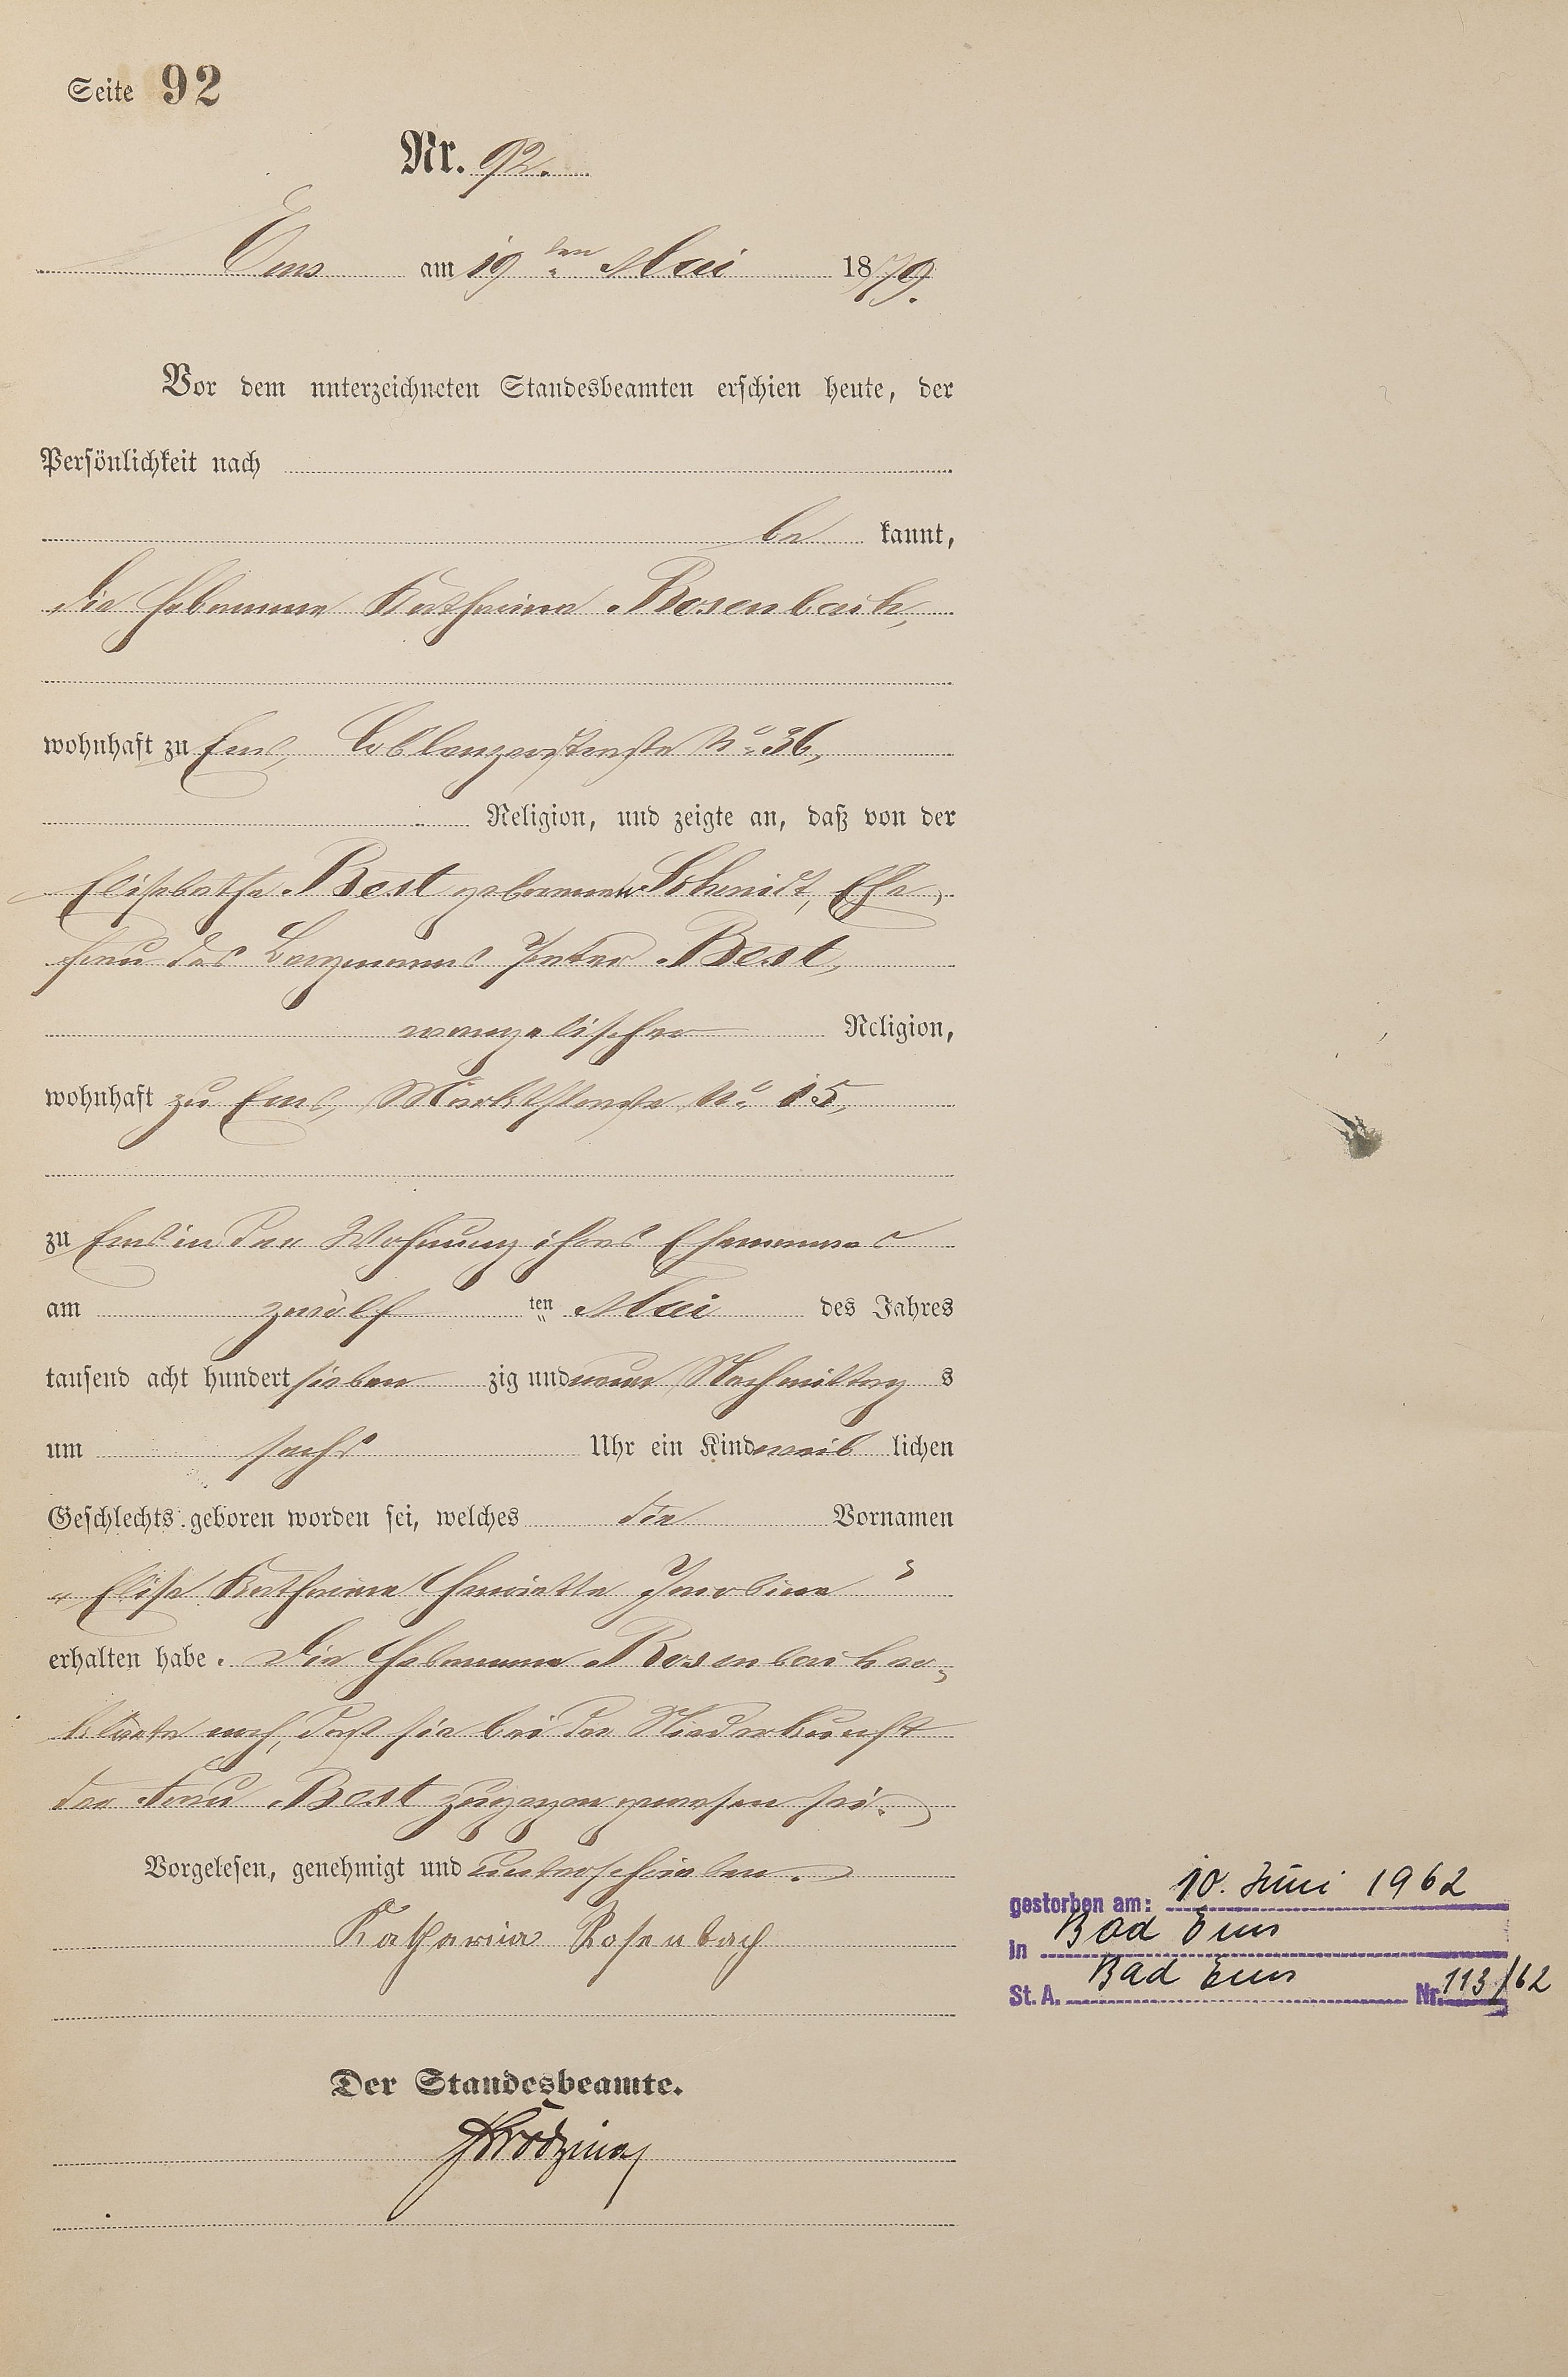 Seite 92
Nr. 92.
Ems am 19ten Mai 1879.
Vor dem unterzeichneten Standesbeamten erschien heute, der
Persönlichkeit nach
be kannt,
die Hebamme Katharina Rosenbach,
wohnhaft zu Ems, Coblenzerstraße No. 36,
Religion, und zeigte an, daß von der
Elisabetha Best geborenen Schmidt, Ehe-
frau des Bergmanns Peter Best,
evangelischer Religion,
wohnhaft zu Ems, Marktstraße No. 15,
zu Ems in der Wohnung ihres Ehemannes
am zwölf ten Mai des Jahres
tausend acht hundert sieben zig und neun Nachmittag s
um sechs Uhr ein Kind weib lichen
Geschlechts geboren worden sei, welches die Vornamen
"Elise Katharina Henriette Jacobine"
erhalten habe. Die Hebamme Rosenbach er-
klärte noch, daß sie bei der Niederkunft
der Frau Best zugegen gewesen sei.
Vorgelesen, genehmigt und unterschrieben.
Katharina Rosenbach
Der Standesbeamte.
gestorben am: 10. Juni 1962
in Bad Ems
St. A. Bad Ems Nr. 113/62